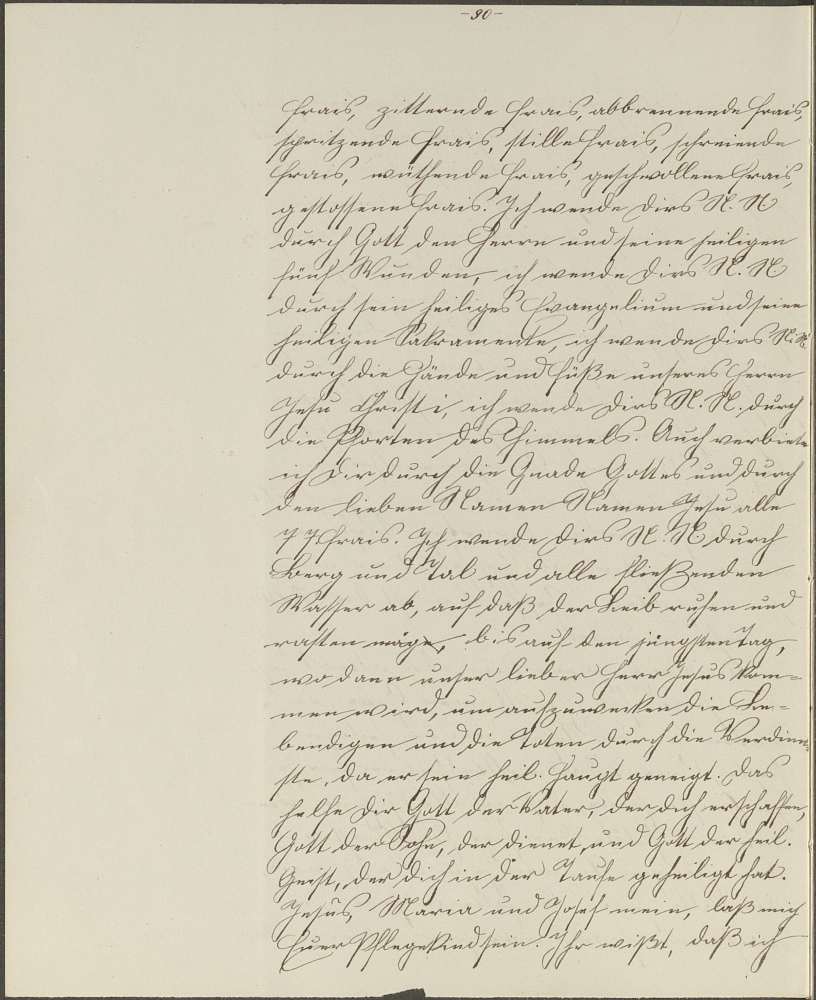 -90-
Frais, zitternde Frais, abbrennende Frais,
spritzende Frais, stille Frais, schreiende
Frais, wüthende Frais, geschwollene Frais,
gestossene Frais. Ich wende dirs N. N
durch Gott den Herrn und seine heiligen
fünf Wunden, ich wende dirs N. N
durch sein heiliges Evangelium und seine
heiligen Sakramente, ich wende dirs N. N.
durch die Hände und Füße unseres Herrn
Jesu Christi, ich wende dirs N. N. durch
die Pforten des Himmels. Auch verbiete
ich dir durch die Gnade Gottes und durch
den lieben Namen Namen Jesu alle
77 Frais. Ich wende dirs N. N durch
Berg und Tal und alle fließenden
Wasser ab, auf daß der Leib ruhen und
rasten möge, bis auf den jüngsten Tag,
wo dann unser lieber Herr Jesus kom-
men wird, um aufzuwecken die Le-
bendigen und die Toten durch die Verdien-
ste, da er sein heil. Haupt geneigt. Das
helfe dir Gott der Vater, der dich erschaffen,
Gott der Sohn, der dienet, und Gott der heil.
Geist, der dich in der Taufe geheiligt hat.
Jesus, Maria und Josef mein, laß mich
Euer Pflegekind sein. Ihr wißt, daß ich